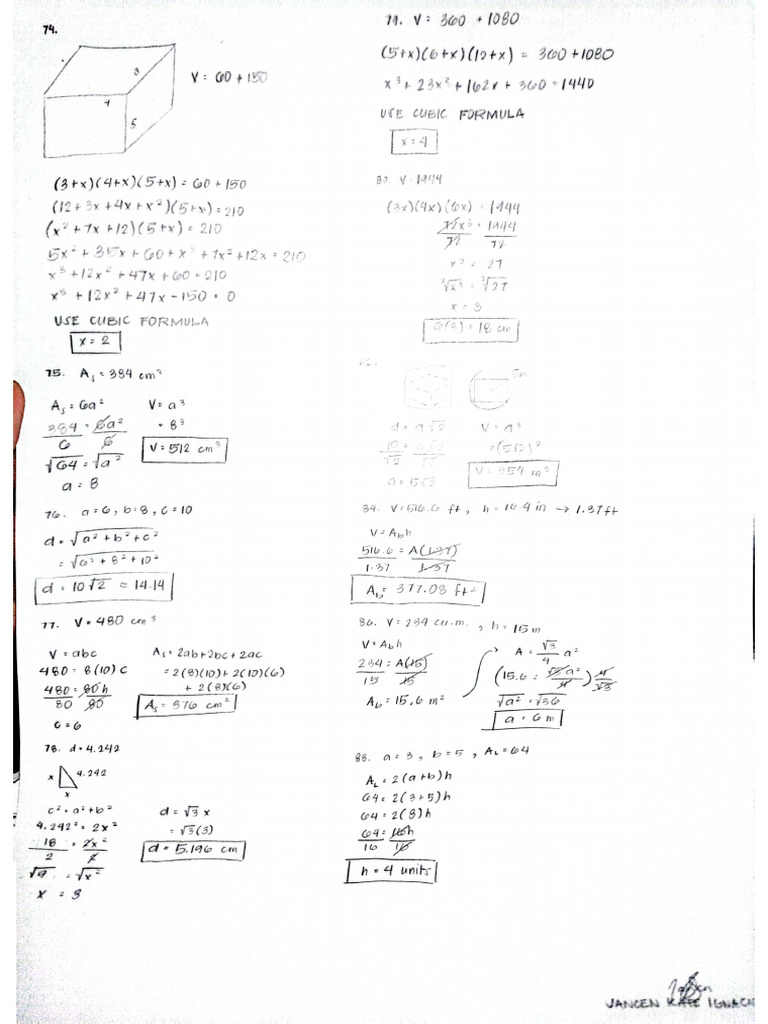 74.
3
4
5
V = 60 + 150
(3+x)(4+x)(5+x) = 60 + 150
(12 + 3x + 4x + x²)(5+x) = 210
(x² + 7x + 12)(5+x) = 210
5x² + 35x + 60 + x³ + 7x² + 12x = 210
x³ + 12x² + 47x + 60 = 210
x³ + 12x² + 47x - 150 = 0
USE CUBIC FORMULA
x = 2
75. As = 384 cm²
As = 6a²
384 = 6a²
6 6
√64 = √a²
a = 8
V = a³
= 8³
V = 512 cm³
76. a = 6, b = 8, c = 10
d = √a² + b² + c²
= √6² + 8² + 10²
d = 10√2 ≈ 14.14
77. V = 480 cm³
V = abc
480 = 8(10) c
480 = 80h
80 80
c = 6
As = 2ab + 2bc + 2ac
= 2(8)(10) + 2(10)(6)
+ 2(8)(6)
As = 376 cm²
78. d = 4.242
x
4.242
x
c² = a² + b²
4.242² = 2x²
18 = 2x²
2 2
√9 = √x²
x = 3
d = √3 x
= √3 (3)
d = 5.196 cm
79. V = 360 + 1080
(5+x)(6+x)(12+x) = 360 + 1080
x³ + 23x² + 162x + 360 = 1440
USE CUBIC FORMULA
x = 4
80. V = 1944
(3x)(4x)(6x) = 1944
72x³ = 1944
72 72
x³ = 27
³√x³ = ³√27
x = 3
6(3) = 18 cm
d = a√3
10 = a√3
√3
V = a³
V = 354 m³
84. V = 516.6 ft, h = 16.4 in → 1.37 ft
V = Abh
516.6 = A(1.37)
1.37 1.37
Ab = 377.08 ft²
86. V = 234 cu.m., h = 15 m
V = Abh
234 = A(15)
15 15
Ab = 15.6 m²
A = √3/4 a²
(15.6 = √3 a²/4) 4/√3
√a² = √36
a = 6 m
88. a = 3, b = 5, AL = 64
AL = 2(a+b)h
64 = 2(3+5)h
64 = 2(8)h
64 = 16h
16 16
h = 4 units
JANCEN KATE IGNACIO